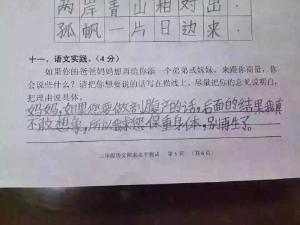 两岸青山相对出，
孤帆一片日边来。
十一、语文实践。（4分）
如果你的爸爸妈妈想再给你添一个弟弟或妹妹，来跟你商量，你
会说些什么？请把你想要说的话写在横线上，尽量把你的意见说明白，
把理由说具体。
妈妈,如果您要做剖腹产的话,后面的结果我真
不敢想象,所以我求您保重身体,别再生了。
二年级语文期末水平测试 第5页 （共6页）